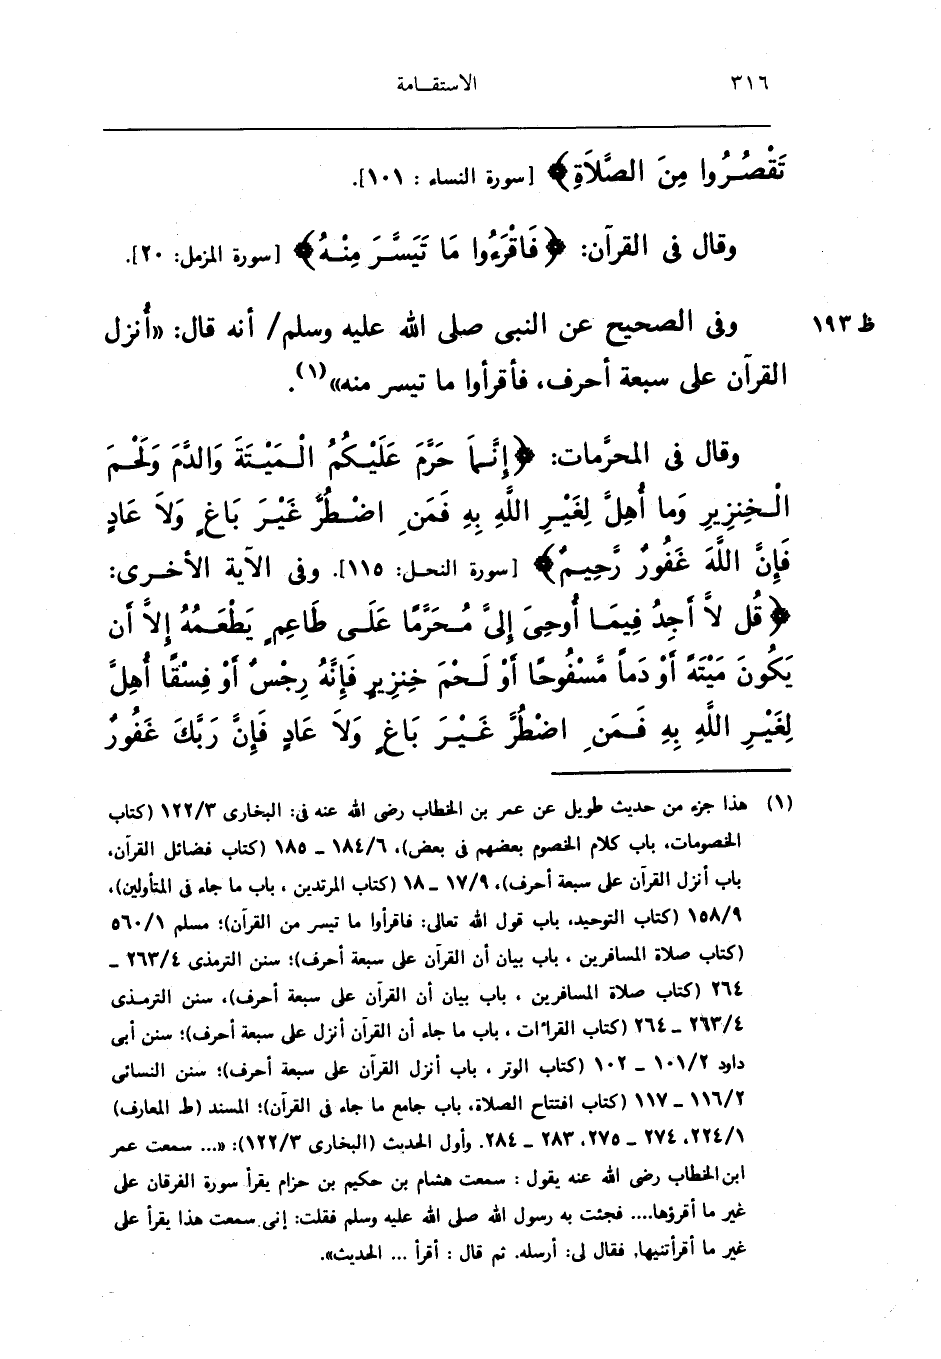 ٣١٦ الاستقـامة
تَقْصُـرُوا مِنَ الصَّلَاةِ﴾ [سورة النساء : ١٠١].
وقال فى القرآن: ﴿فَاقْرَءُوا مَا تَيَسَّـرَ مِنْـهُ﴾ [سورة المزمل: ٢٠].
وفى الصحيح عن النبى صلى الله عليه وسلم/ أنه قال: «أُنزل ظ ١٩٣
القرآن على سبعة أحرف، فأقرأوا ما تيسر منه»(١).
وقال فى المحرَّمات: ﴿إِنَّـمَا حَرَّمَ عَلَيْـكُمُ الْـمَيْـتَةَ وَالدَّمَ وَلَحْـمَ
الْـخِنزِيرِ وَما أُهِلَّ لِغَيْـرِ اللَّهِ بِهِ فَمَنِ اضْـطُرَّ غَيْـرَ بَاغٍ وَلاَ عَادٍ
فَإِنَّ اللَّهَ غَفُورٌ رَّحِيـمٌ﴾ [سورة النحـل: ١١٥]. وفى الآية الأخـرى:
﴿قُل لاَّ أَجِدُ فِيمَـا أُوحِىَ إِلىَّ مُـحَرَّمًا عَلَـى طَاعِمٍ يَطْعَـمُهُ إِلاَّ أَن
يَكُونَ مَيْتَةً أَوْ دَماً مَّسْفُوحًا أَوْ لَـحْمَ خِنزِيرٍ فَإِنَّهُ رِجْسٌ أَوْ فِسْقًا أُهِلَّ
لِغَيْـرِ اللَّهِ بِهِ فَـمَنِ اضْطُرَّ غَـيْـرَ بَاغٍ وَلاَ عَادٍ فَإِنَّ رَبَّكَ غَفُورٌ
(١) هذا جزء من حديث طويل عن عمر بن الخطاب رضى الله عنه فى: البخارى ١٢٢/٣ (كتاب
الخصومات، باب كلام الخصوم بعضهم فى بعض)، ١٨٤/٦ ـ ١٨٥ (كتاب فضائل القرآن،
باب أنزل القرآن على سبعة أحرف)، ١٧/٩ ـ ١٨ (كتاب المرتدين ، باب ما جاء فى المتأولين)،
١٥٨/٩ (كتاب التوحيد، باب قول الله تعالى: فاقرأوا ما تيسر من القرآن)؛ مسلم ٥٦٠/١
(كتاب صلاة المسافرين ، باب بيان أن القرآن على سبعة أحرف)؛ سنن الترمذى ٢٦٣/٤ ـ
٢٦٤ (كتاب صلاة المسافرين ، باب بيان أن القرآن على سبعة أحرف)، سنن الترمـذى
٢٦٣/٤ ـ ٢٦٤ (كتاب القراءات ، باب ما جاء أن القرآن أنزل على سبعة أحرف)؛ سنن أبى
داود ١٠١/٢ ـ ١٠٢ (كتاب الوتر ، باب أنزل القرآن على سبعة أحرف)؛ سنن النسائى
١١٦/٢ ـ ١١٧ (كتاب افتتاح الصلاة، باب جامع ما جاء فى القرآن)؛ المسند (ط المعارف)
٢٢٤/١، ٢٧٤ ـ ٢٧٥، ٢٨٣ ـ ٢٨٤. وأول الحديث (البخارى ١٢٢/٣): «... سمعت عمر
ابن الخطاب رضى الله عنه يقول : سمعت هشام بن حكيم بن حزام يقرأ سورة الفرقان على
غير ما أقرؤها.... فجئت به رسول الله صلى الله عليه وسلم فقلت: إنى سمعت هذا يقرأ على
غير ما أقرأتنيها، فقال لى: أرسله. ثم قال : أقرأ ... الحديث».